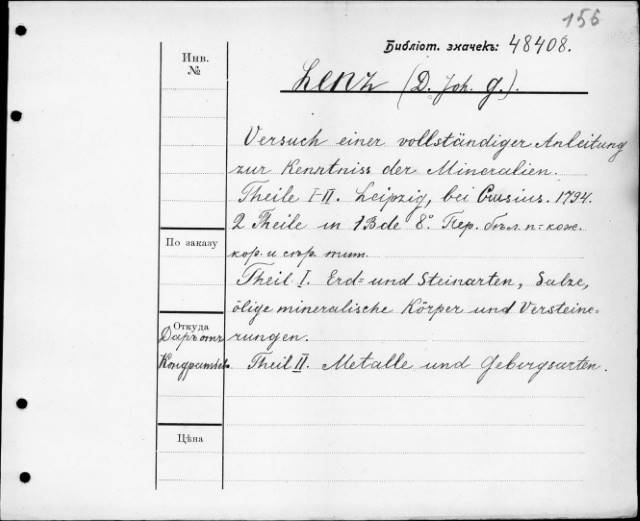 156
Библіот. значекъ: 48408.
Инв.
№
Lenz (D. Joh. G.).
Versuch einer vollständiger Anleitung
zur Kenntniss der Mineralien.
Theile I-II. Leipzig, bei Crusius. 1794.
2 Theile in 1 Bde 8°. Пер. бѣл. п:-кож.
кор. и стр. тит.
По заказу
Theil I. Erd= und Steinarten, Salze,
ölige mineralische Körper und Versteine-
rungen.
Откуда
Даръ отъ
Theil II. Metalle und Gebirgsarten.
Цѣна